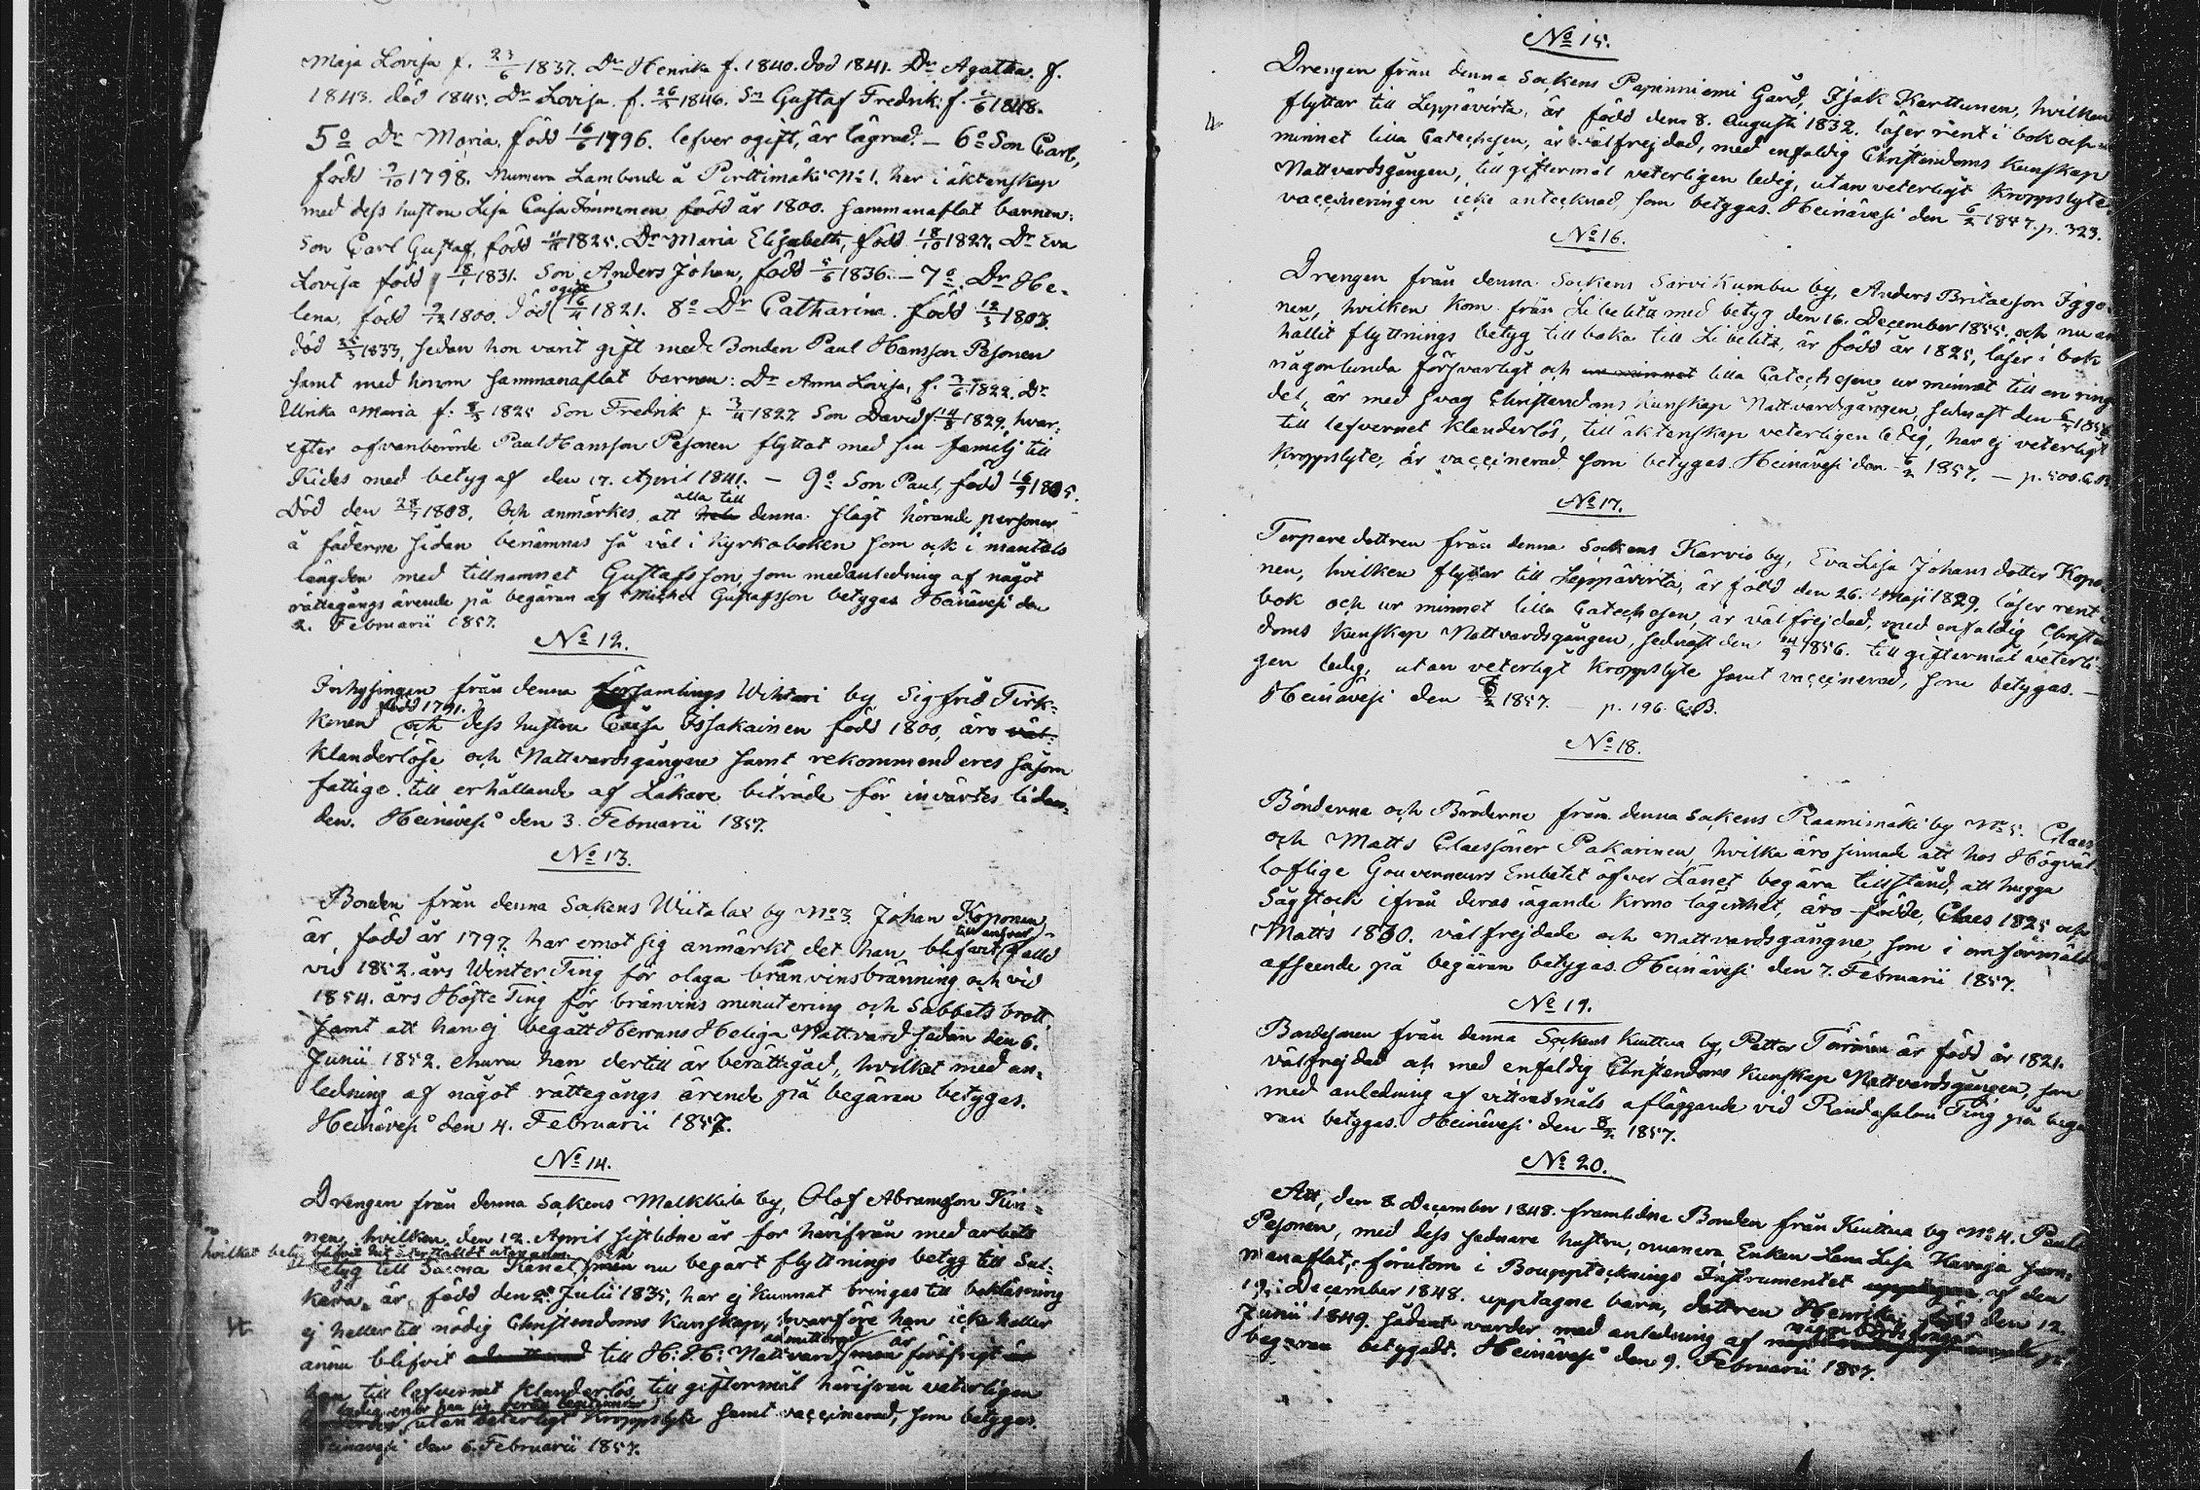 Maja Lovisa f. 23/6 1837. Dr Henrika f. 1840. död 1841. Dr Agatha. f.
1843. död 1845. Dr Lovisa. f. 26/5 1846. Sn Gustaf Fredrik. f. 1/6 1848.
5o Dr Maria, född 16/6 1796. lefver ogift, är lägrad. — 6o Son Carl,
född 9/10 1798. Numera Lambonde å Pirttimäki No 1. har i äktenskap
med dess hustru Lisa Caisa Immonen född år 1800. sammanaflat barnen:
Son Carl Gustaf, född 1825. Dr Maria Elisabeth, född 18/10 1827. Dr Eva
Lovisa född 18/1 1831. Son Anders Johan, född 5/6 1836. — 7o Dr He-
lena, född 9/12 1800. död ogift 16/4 1821. 8o Dr Catharina. född 12/3 1803.
död 25/3 1833, sedan hon varit gift med Bonden Paul Hansson Pesonen
samt med honom sammanaflat barnen: Dr Anna Lovisa, f. 3/6 1822. Dr
Ulrika Maria f. 8/5 1825 Son Fredrik f. 3/4 1827 Son David f. 14/8 1829. hvar-
efter ofvanberörde Paul Hansson Pesonen flyttat med sin familj till
Kides med betyg af den 17. April 1841. — 9o Son Paul, född 16/9 1805.
Död den 28/7 1808. Och anmärkes, att alla till denna slägt hörande personer
å fäderne sidan benämnas så väl i Kyrkoboken som ock i mantals
längden med tillnamnet Gustafsson, som med anledning af något
rättegångs ärende på begäran af Michel Gustafsson betygas Heinävesi den
2. Februarii 1857.
No 12.
Inhysingen från denna församlings Wihtari by Sigfrid Tirk-
konen född 1791. och dess hustru Caisa Ossakainen född 1800, äro väl-
klanderlöse och Nattvardsgångne samt rekommenderes såsom
fattige till erhållande af Läkare biträde för invärtes lidan-
den. Heinävesi den 3. Februarii 1857.
No 13.
Bonden från denna Sockens Wiitalax by No 3 Johan Koponen,
är, född år 1797. har emot sig anmärkt det han blifvit till ansvar fälld
vid 1852. års Winter Ting för olaga bränvinsbränning och vid
1854. års Höste Ting för bränvins minutering och Sabbats brott,
samt att han ej begått Herrans Heliga Nattvard sedan den 6.
Junii 1852. ehuru han dertill är berättigad, hvilket med an-
ledning af något rättegångs ärende på begäran betygas.
Heinävesi den 4. Februarii 1857.
No 14.
Drengen från denna Sockens Malkkila by, Olof Abramsson Kin-
nen, hvilken den 12. April sistlidne år for härifrån med arbets
hvilket bety
betyg till Saima Kanal, men nu begärt flyttnings betyg till Sul-
kava, är född den Julii 1835, har ej kunnat bringas till bokläsning
ej heller till nödig Christendoms Kunskap, hvarföre han icke heller
ännu blifvit till H: H: Nattvard admitterad men är föröfrigt
till lefvernet klanderlös till giftermål härifrån veterligen
ledig, utan veterligt Kroppslyte samt vaccinerad, som betygas.
Heinävesi den 6. Februarii 1857.
No 15.
Drengen från denna Sockens Papinniemi Gård, Isak Karttunen, hvilken
flyttar till Leppävirta, är född den 8. Augusti 1832. läser rent i bok och ur
minnet lilla Catechesen, är välfrejdad, med enfaldig Christendoms Kunskap
Nattvardsgången, till giftermål veterligen ledig, utan veterligt Kroppslyte,
vaccineringen icke antecknad, som betygas. Heinävesi den 6/2 1857. p. 323.
No 16.
Drengen från denna Sockens Sarvikumbu by, Anders Britaeson Iggo-
nen, hvilken kom från Libelits med betyg den 16. December 1855. och nu an
hållit flyttnings betyg till baka till Libelitz, är född år 1825, läser i bok
någorlunda försvarligt och ur minnet lilla Catechesen ur minnet till en ringa
del, är med svag Christendoms Kunskap Nattvardsgången, sednast den 6/7 1856
till lefvernet klanderlös, till äktenskap veterligen ledig, har ej veterligt
Kroppslyte, är vaccinerad som betygas. Heinävesi den 6/2 1857. — p. 500. C.B.
No 17.
Torpare dottren från denna Sockens Karvio by, Eva Lisa Johans dotter Kopo-
nen, hvilken flyttar till Leppävirta, är född den 26. Maji 1829, läser rent i
bok och ur minnet lilla Catechesen, är välfrejdad, med enfaldig Christen
doms Kunskap Nattvardsgången, sednast den 14/9 1856. till giftermål veterli-
gen ledig, utan veterligt Kroppslyte samt vaccinerad, som betygas. —
Heinävesi den 6/2 1857. — p. 196 C.B.
No 18.
Bönderna och Bröderne från denna Sockens Raamimäki by No 5. Claes
och Matts Claessöner Pakarinen, hvilka äro sinnade att hos Högväl
loflige Gouverneurs Embetet öfver Länet begära tillstånd, att hugga
Sågstock ifrån deras ägande Krono lägenhet, äro födde, Claes 1825 och
Matts 1830. välfrejdade och Nattvardsgångne, som i omförmäldt
afseende på begäran betygas. Heinävesi den 7. Februarii 1857.
No 19.
Bondesonen från denna Sockens Kuittua by, Petter Törönen är född år 1821.
välfrejdad och med enfaldig Christendoms Kunskap Nattvardsgången, som
med anledning af vittnesmåls afläggande vid Randasalmi Ting på begä
ran betygas. Heinävesi den 8/2 1857.
No 20.
Att, den 8 December 1848. framlidne Bonden från Kuittua by No 4. Paul
Pesonen, med dess sednare hustru, numera Enkan Lena Lisa Havasa sam-
manaflat, förutom i Bouppteckning Instrumentet af den
19. December 1848. upptagne barn, dottren Henrika, född den 12.
Junii 1849. sådant varder med anledning af
begäran betygadt. Heinävesi den 9. Februarii 1857.